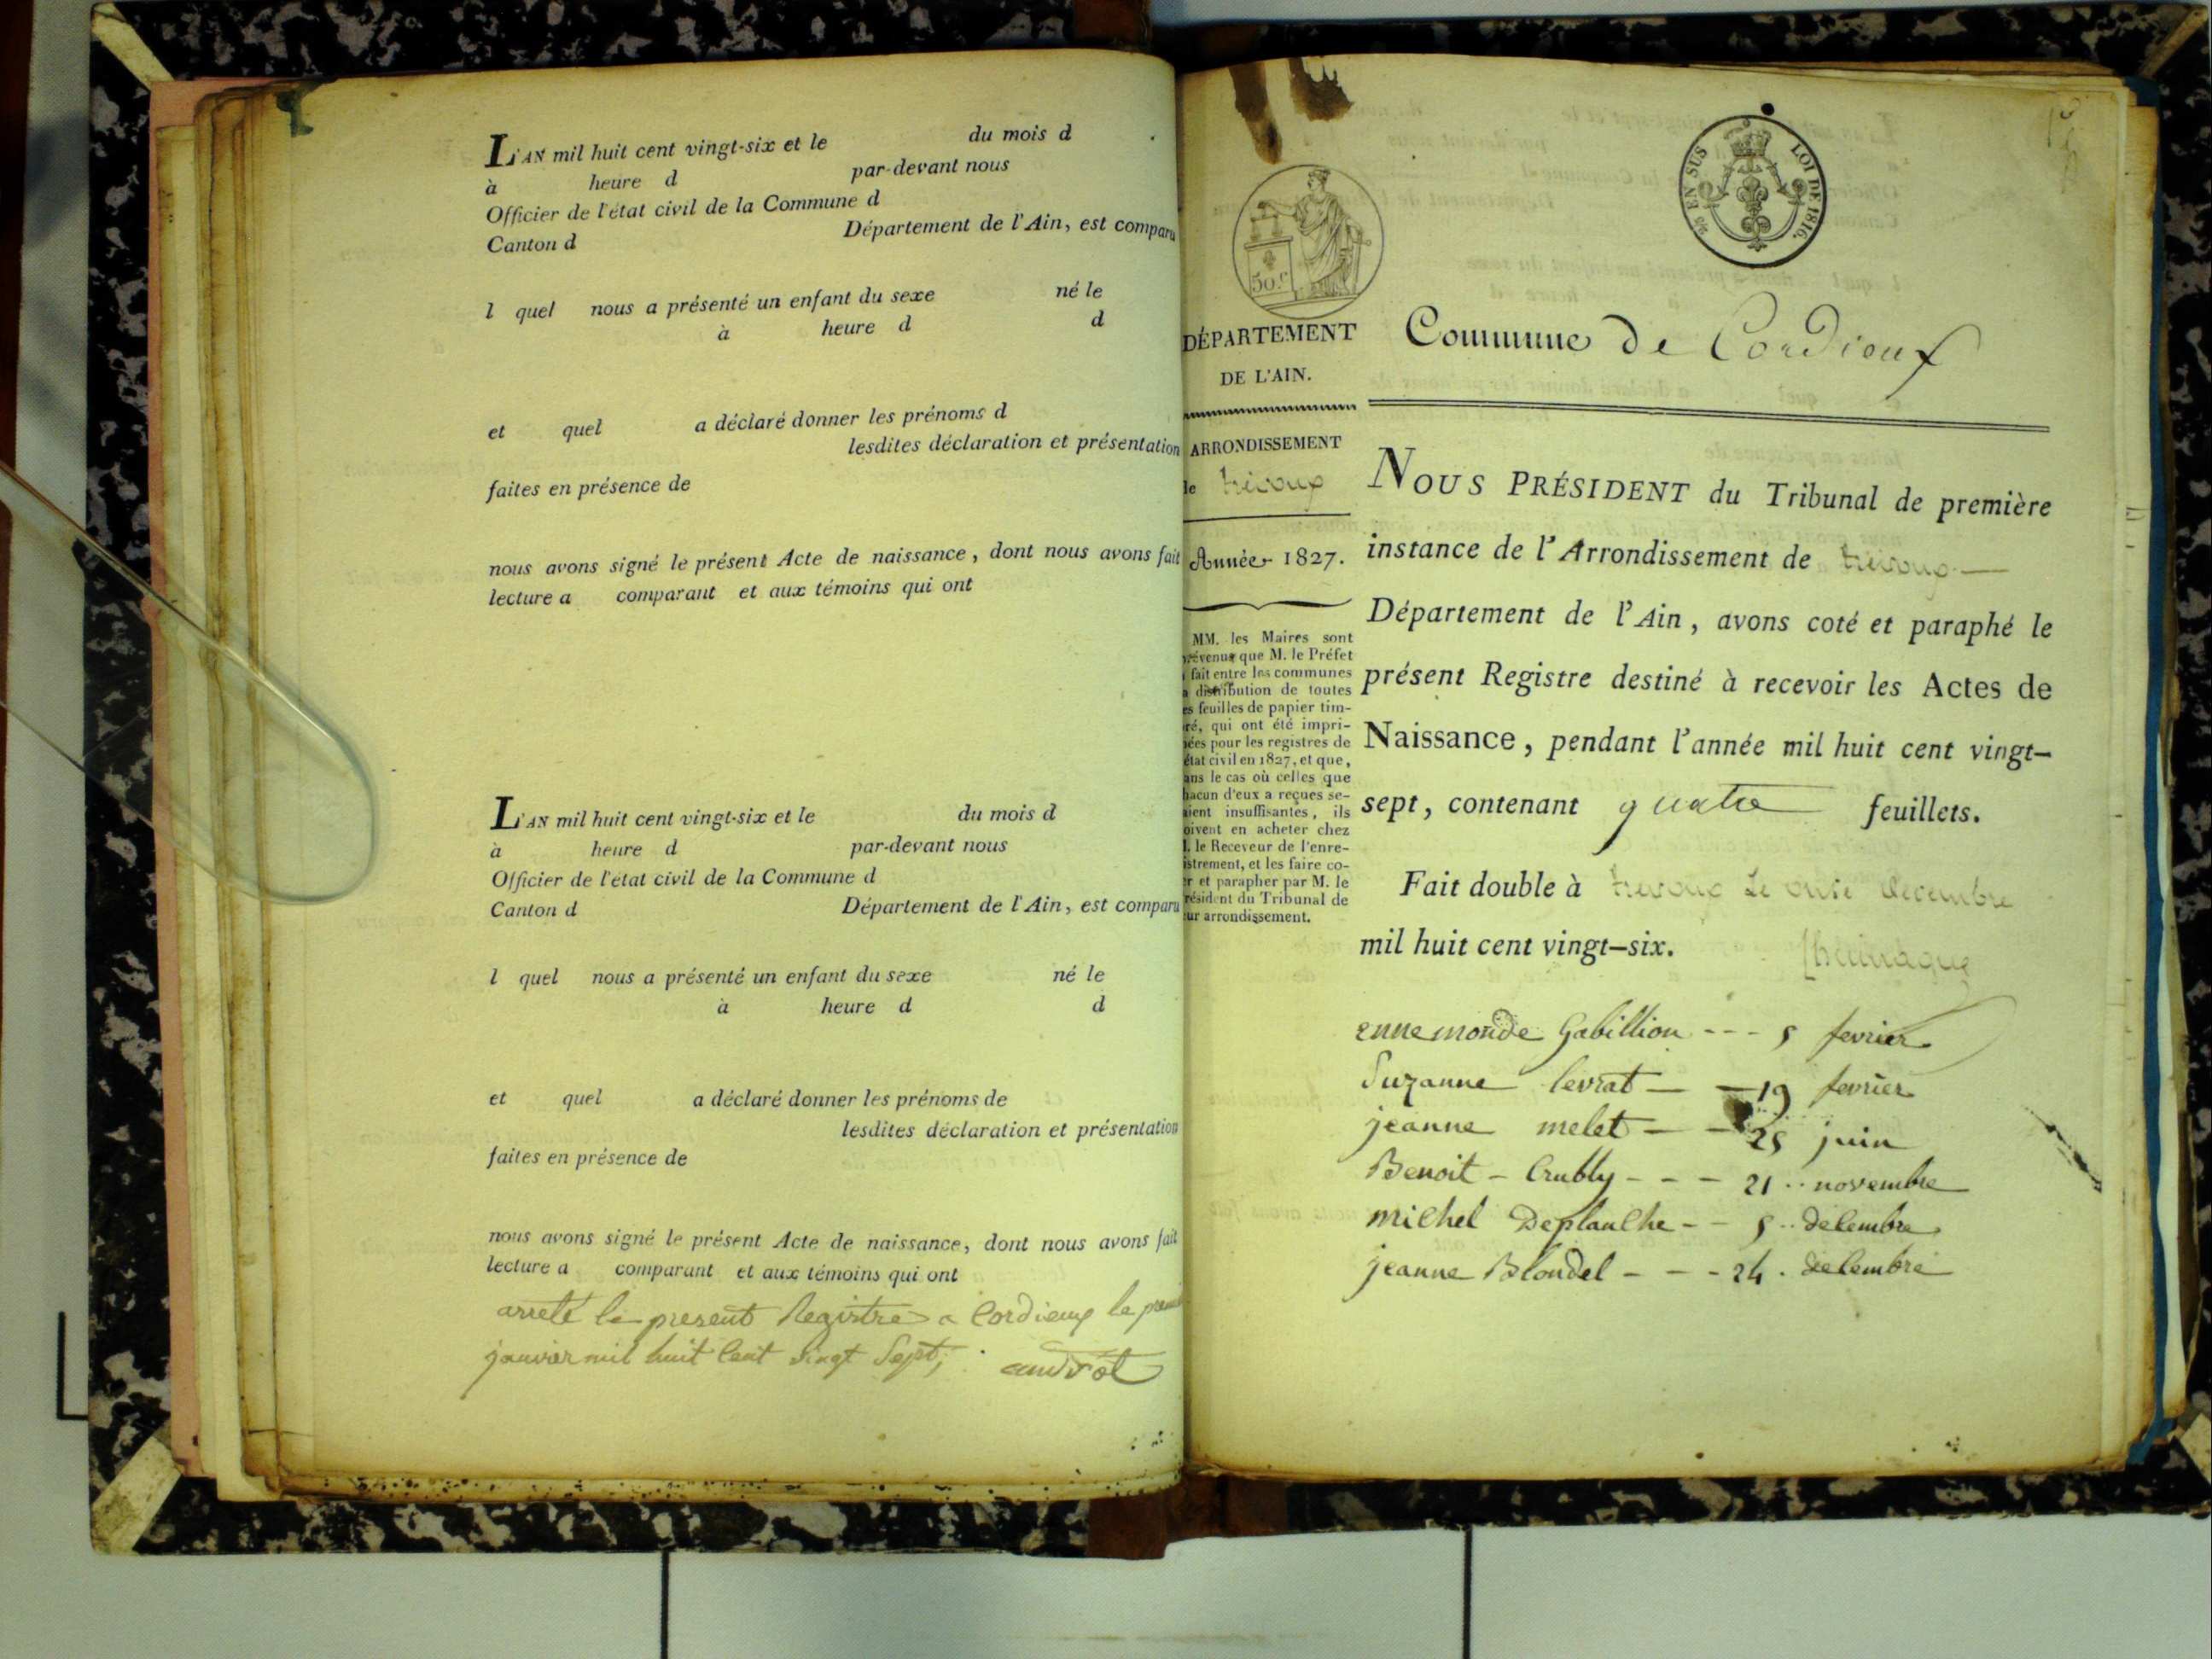 L'AN mil huit cent vingt-six et le du mois d
à heure d par-devant nous
Officier de l'état civil de la Commune d
Canton d Département de l'Ain, est comparu
l quel nous a présenté un enfant du sexe né le
à heure d d
et quel a déclaré donner les prénoms d
lesdites déclaration et présentation
faites en présence de
nous avons signé le présent Acte de naissance, dont nous avons fait
lecture a comparant et aux témoins qui ont
L'AN mil huit cent vingt-six et le du mois d
à heure d par-devant nous
Officier de l'état civil de la Commune d
Canton d Département de l'Ain, est comparu
l quel nous a présenté un enfant du sexe né le
à heure d d
et quel a déclaré donner les prénoms de
lesdites déclaration et présentation
faites en présence de
nous avons signé le présent Acte de naissance, dont nous avons fait
lecture a comparant et aux témoins qui ont
arreté le present Registre a Cordieux le
janvier mil huit Cent vingt Sept,
50.c
EN SUS LOI DE 1816.
DÉPARTEMENT
DE L'AIN.
ARRONDISSEMENT
de trevoux
Année 1827.
MM. les Maires sont
prévenus que M. le Préfet
fait entre les communes
distribution de toutes
feuilles de papier tim-
qui ont été impri-
pour les registres de
état civil en 1827, et que,
le cas où celles que
d'eux a reçues se-
insuffisantes, ils
en acheter chez
le Receveur de l'enre-
et les faire co-
et parapher par M. le
Président du Tribunal de
arrondissement.
Commune de Cordieux
NOUS PRÉSIDENT du Tribunal de première
instance de l'Arrondissement de trevoux
Département de l'Ain, avons coté et paraphé le
présent Registre destiné à recevoir les Actes de
Naissance, pendant l'année mil huit cent vingt-
sept, contenant quatre feuillets.
Fait double à trevoux le onze decembre
mil huit cent vingt-six.
ennemonde Gabillion --- 5 fevrier
Suzanne levrat — — 19 fevrier
jeanne melet — — 25 juin
Benoit - Crubly - - - 21 .. novembre
michel Deplanche - - 5 .. decembre
jeanne Blondel - - - 24 . decembre